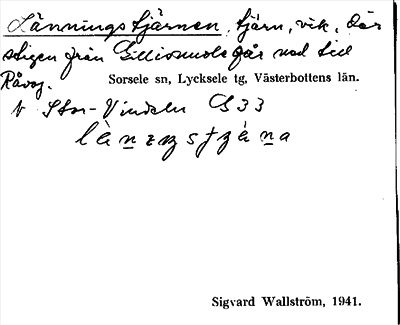 Länningstjärnen, tjärn, vik, där
stigen från Gillesnuole går ned till
Råvoj.
Sorsele sn, Lycksele tg, Västerbottens län.
N Stor-Vindeln C 33
Sigvard Wallström, 1941.